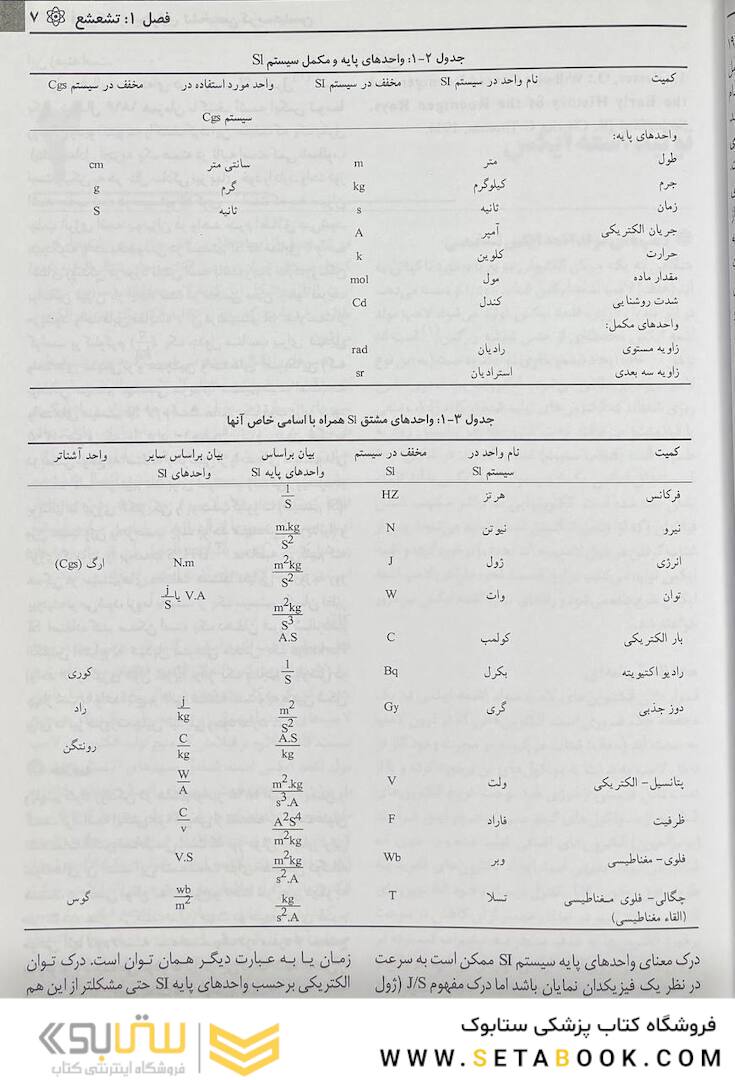 فصل ۱: تشعشع ۷
جدول ۲-۱: واحدهای پایه و مکمل سیستم SI
کمیت نام واحد در سیستم SI مخفف در سیستم SI واحد مورد استفاده در سیستم Cgs مخفف در سیستم Cgs
واحدهای پایه:
طول متر m سانتی متر cm
جرم کیلوگرم kg گرم g
زمان ثانیه s ثانیه S
جریان الکتریکی آمپر A
حرارت کلوین k
مقدار ماده مول mol
شدت روشنایی کندل Cd
واحدهای مکمل:
زاویه مستوی رادیان rad
زاویه سه بعدی استرادیان sr
جدول ۳-۱: واحدهای مشتق SI همراه با اسامی خاص آنها
کمیت نام واحد در سیستم SI مخفف در سیستم SI بیان براساس واحدهای پایه SI بیان براساس سایر واحدهای SI واحد آشناتر
فرکانس هرتز HZ 1/S
نیرو نیوتن N m.kg/S²
انرژی ژول J m²kg/S² N.m ارگ (Cgs)
توان وات W m²kg/S³ V.A یا j/S
بار الکتریکی کولمب C A.S
رادیو اکتیویته بکرل Bq 1/S کوری
دوز جذبی گری Gy m²/S² j/kg راد
A.S/kg C/kg رونتگن
پتانسیل- الکتریکی ولت V m².kg/s³.A W/A
ظرفیت فاراد F A²S⁴/m²kg C/v
فلوی- مغناطیسی وبر Wb m²kg/s².A V.S
چگالی- فلوی مغناطیسی (القاء مغناطیسی) تسلا T kg/s².A wb/m² گوس
درک معنای واحدهای پایه سیستم SI ممکن است به سرعت
در نظر یک فیزیکدان نمایان باشد اما درک مفهوم J/S (ژول
زمان یا به عبارت دیگر همان توان است. درک توان
الکتریکی برحسب واحدهای پایه SI حتی مشکلتر از این هم
فروشگاه کتاب پزشکی ستابوک
WWW.SETABOOK.COM
ستابوک
فروشگاه اینترنتی کتاب